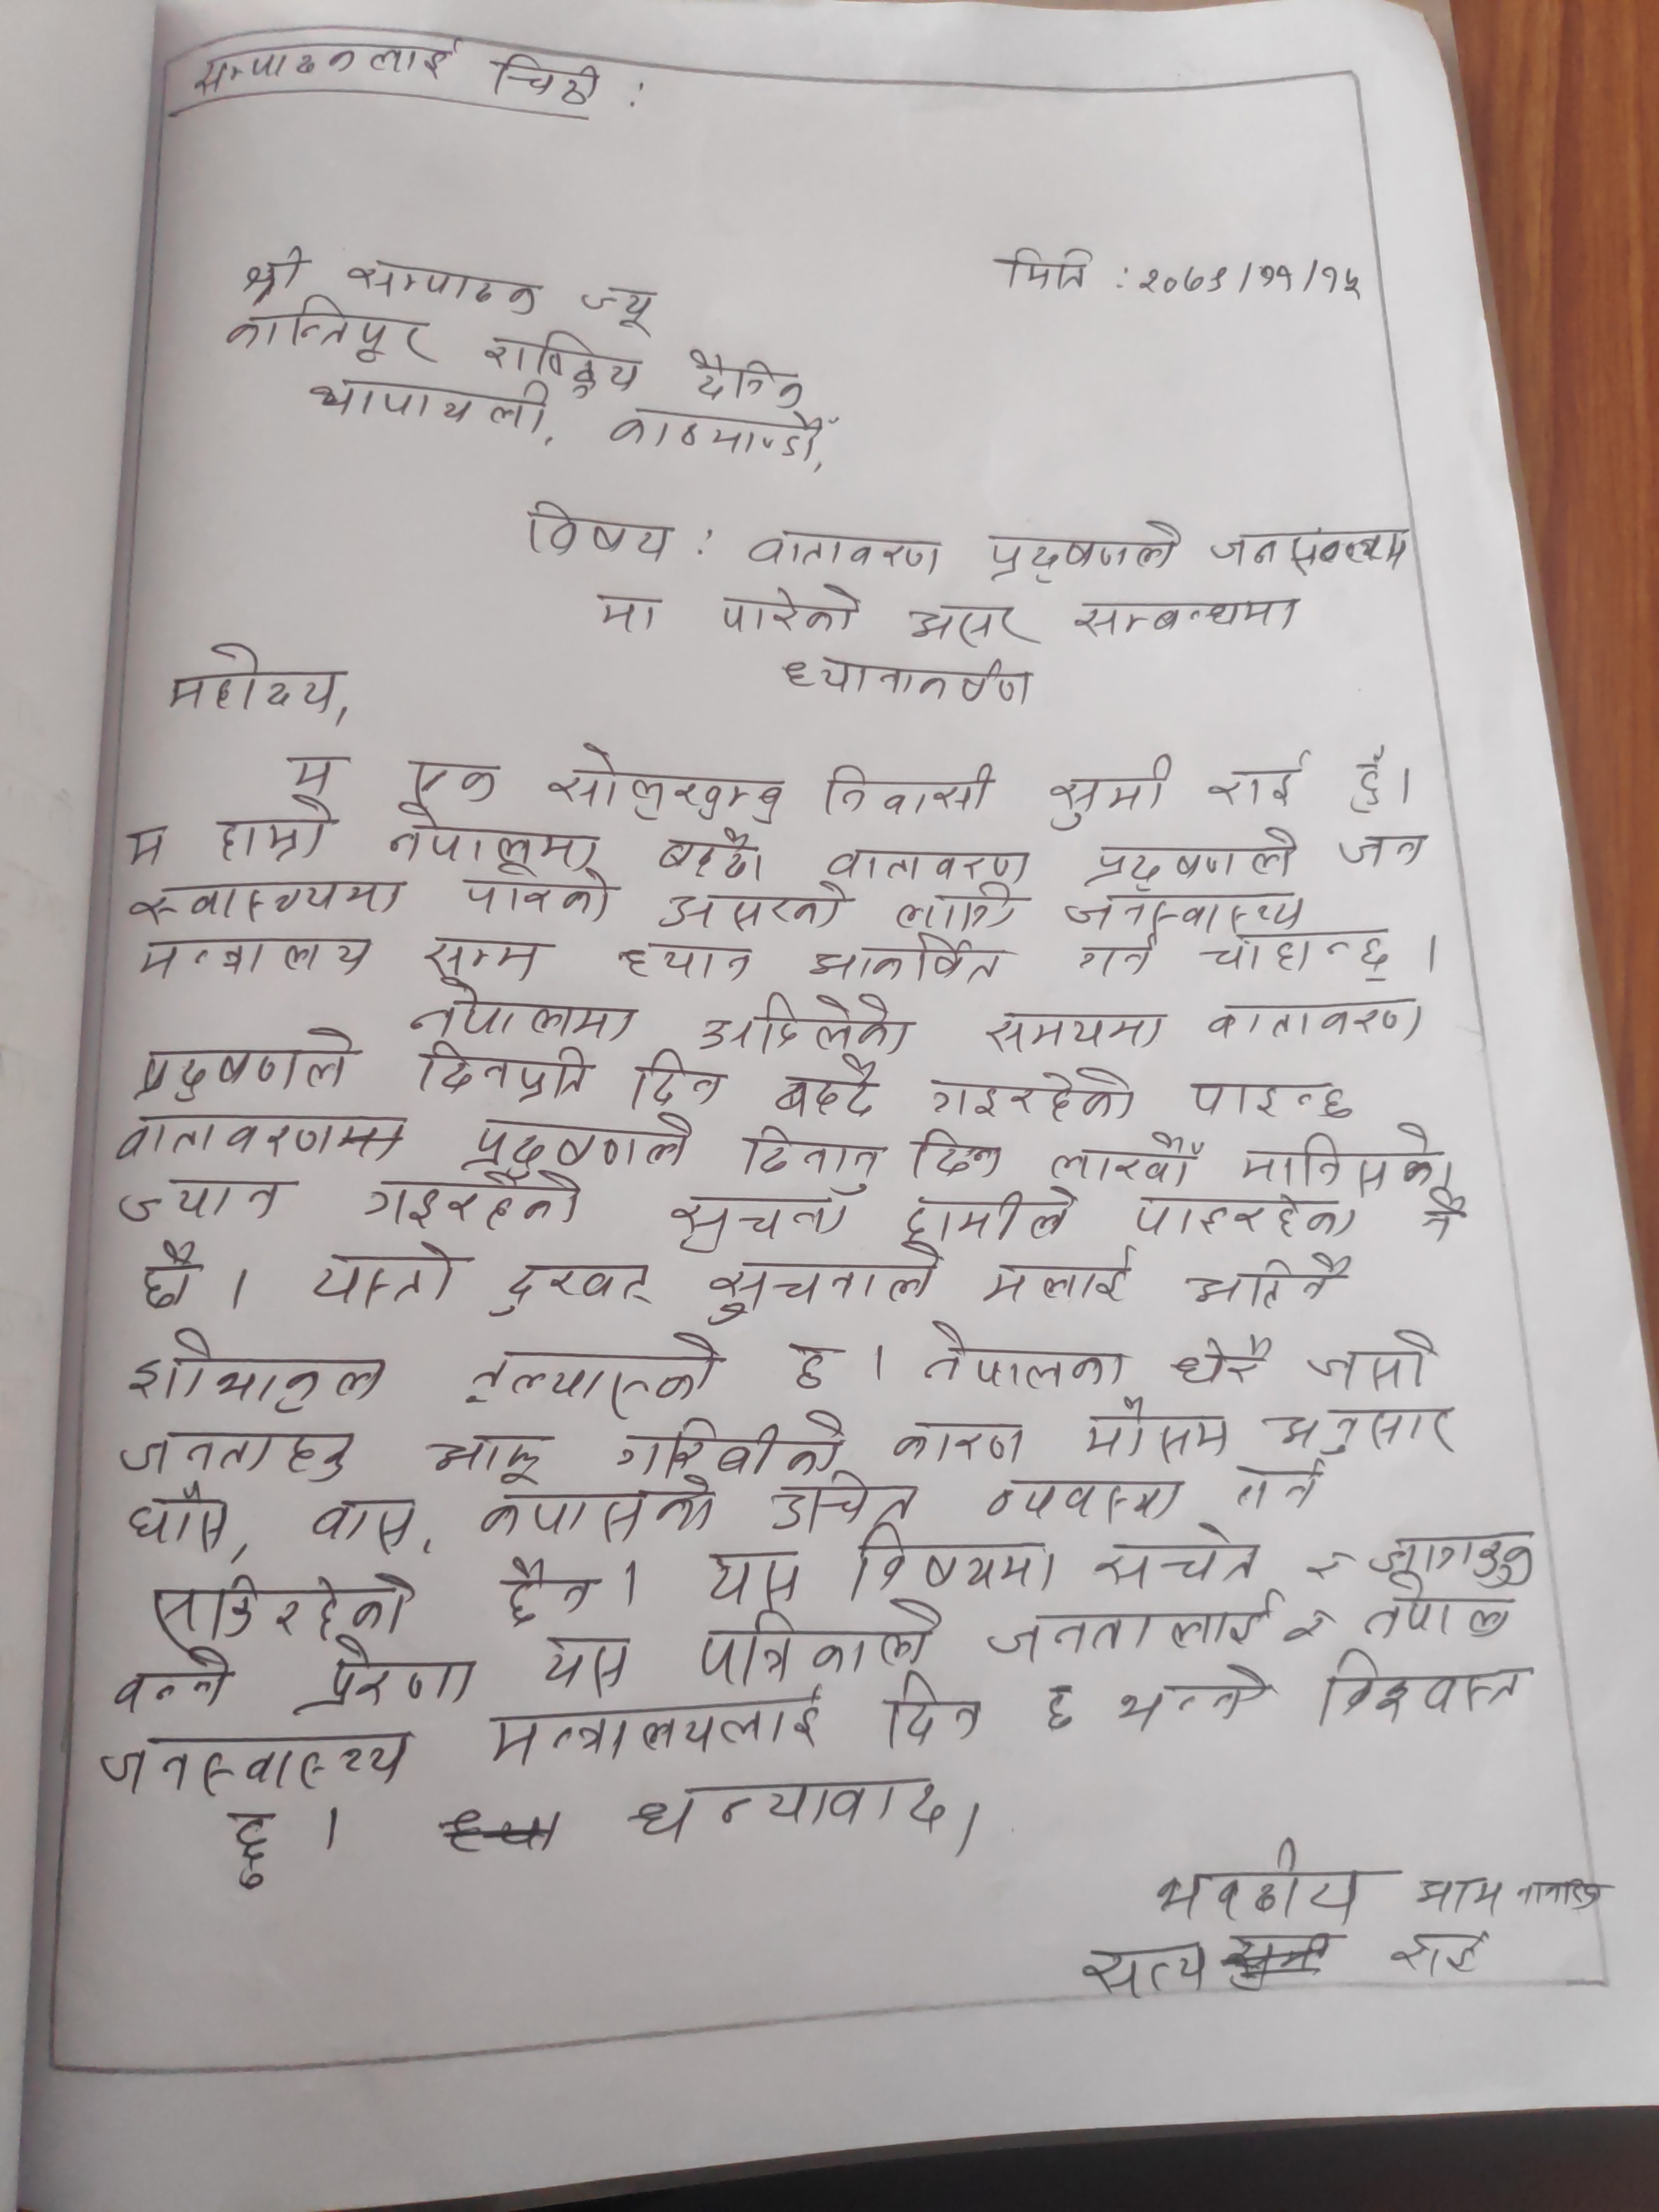 सम्पादकलाई चिठी :
मिति : २०७९/११/१५
श्री सम्पादक ज्यू
कान्तिपूर राष्ट्रिय दैनिक
थापाथली, काठमाण्डौं,
विषय : वातावरण प्रदुषणले जन
मा पारेको असर सम्बन्धमा
ध्यानाकर्षण
महोदय,
म एक सोलुखुम्बु निवासी सुमी राई हुँ।
म हाम्रो नेपालमा बढ्दो वातावरण प्रदुषणले जन
स्वास्थ्यमा पारेको असरको लागि जनस्वास्थ्य
मन्त्रालय सम्म ध्यान आकर्षित गर्न चाहान्छु ।
नेपालमा अहिलेको समयमा वातावरण
प्रदुषणले दिनप्रति दिन बढ्दै गइरहेको पाइन्छ
वातावरणमा प्रदुषणले दिनानु दिन लाखौँ मानिसको
ज्यान गइरहेको सुचना हामीले पाइरहेका नै
छौ । यस्तो दुखद सुचनाले मलाई अतिनै
शोभाकुल तुल्याएको छ । नेपालका धेरै जसो
जनताहरु आफू गरिबीको कारण मौसम अनुसार
घाँस, वास, कपासको उचित व्यवस्था गर्न
सकिरहेको छैन । यस विषयमा सचेत र जागरुक
बन्ने प्रेरणा यस पत्रिकाले जनतालाई र नेपाल
जनस्वास्थ्य मन्त्रालयलाई दिन छ भन्ने विश्वास्त
छु । धन्यावाद।
भवदीय आम नागरिक
सत्य राई